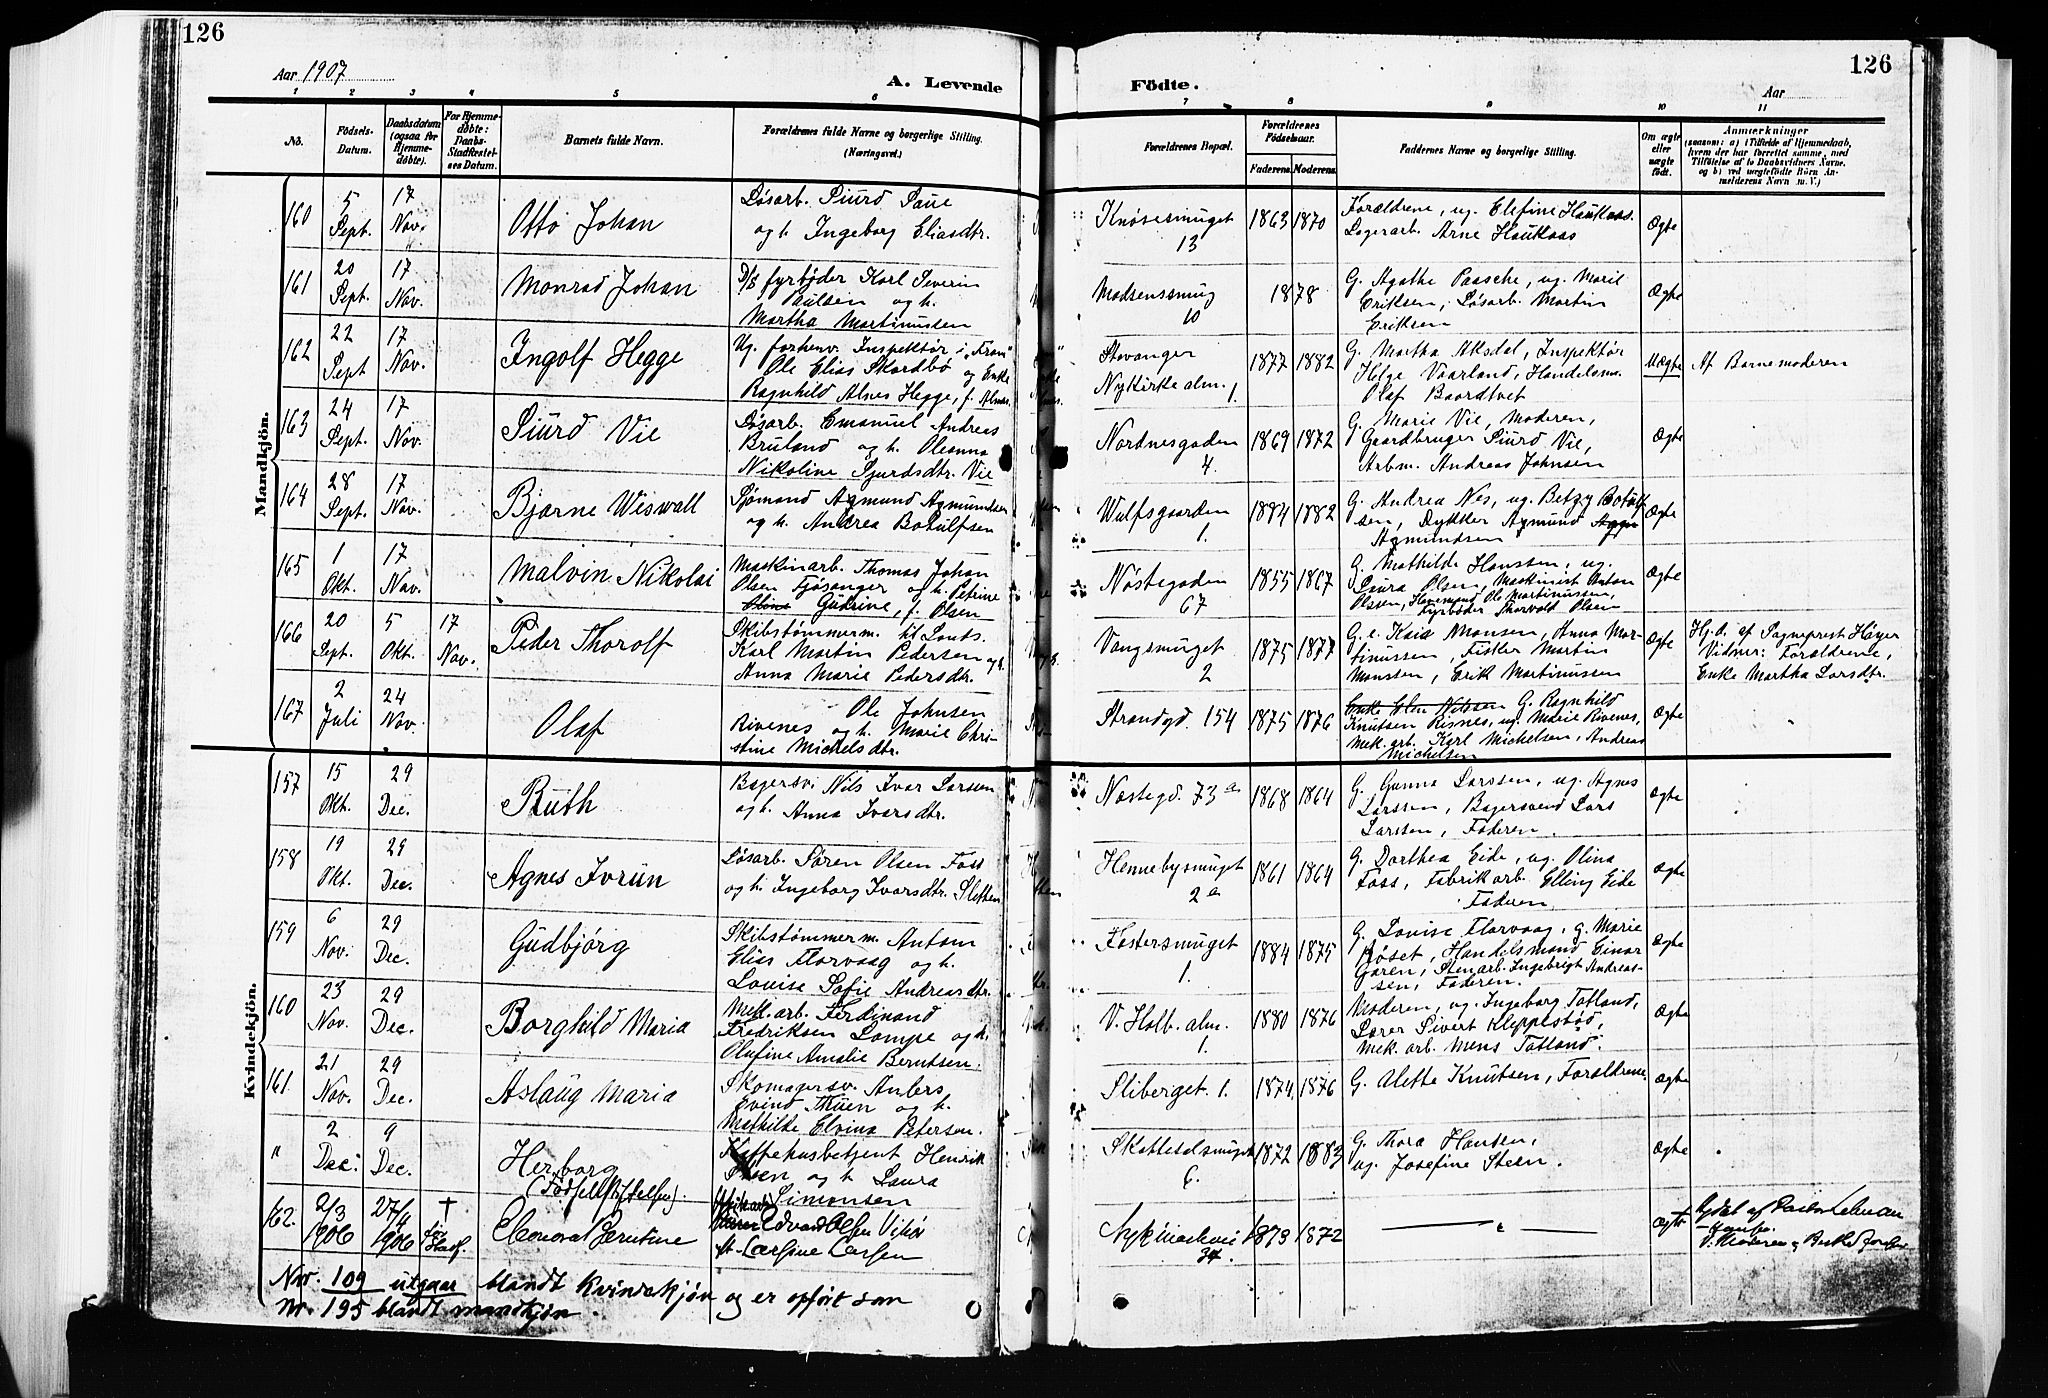 126
126
Aar 1907
A. Levende
Födte.
Aar
1 2 3 4 5 6 7 8 9 10 11
No.
Födsels-
Datum.
Daabsdatum
(ogsaa for
Hjemme-
döbte).
For Hjemme-
döbte:
Daabs-
Stadfæstel-
ses Datum.
Barnets fulde Navn.
Forældrenes fulde Navne og borgerlige Stilling.
(Næringsvei.)
Forældrenes Bopæl.
Forældrenes
Födselsaar.
Faderens. Moderens.
Faddernes Navne og borgerlige Stilling.
Om ægte
eller
uægte
födt.
Anmærkninger
(saasom: a) i Tilfælde af Hjemmedaab,
hvem der har forrettet samme, med
Tilföielse af to Daabsvidners Navne,
og b) ved uægtefödte Börn An-
melderens Navn m. V.)
Mandkjön.
160 5 Sept. 17 Nov. Otto Johan
Løsarb. Sjurd Saue
og h. Ingeborg Eliasdtr.
Knøsesmuget
13
1863 1870
Forældrene, ug. Elefine Haukaas.
Lagerarb. Arne Haukaas
Ægte
161 20 Sept. 17 Nov. Monrad Johan
D/S fyrbøder Karl Severin
Paulsen og h.
Martha Martinussen
Madsenssmug
10
1878
G. Agathe Paasche, ug. Marie
Eriksen, Løsarb. Martin
Eriksen
Ægte
162 22 Sept 17 Nov. Ingolf Hegge
Ug. forhenv. Inspektør i "Fram"
Ole Elias Skardbø og Enke
Ragnhild Alnes Hegge, f. Alnes.
Stavanger
Nykirke alm. 1.
1877 1882
G. Martha Aksdal, Inspektør
Helge Vaarland, Handelsm.
Olaf Baardtvet
Uægte
Af Barnemoderen
163 24 Sept. 17 Nov. Sjurd Vie
Løsarb. Emanuel Andreas
Bruland og h. Oleanna
Nikoline Sjurdsdtr. Vie
Nordnesgaden
4.
1869 1872
G. Marie Vie, Moderen,
Gaardbruger Sjurd Vie,
Arbm. Andreas Johnsen
Ægte
164 28 Sept. 17 Nov. Bjarne Wiswall
Sjømand Agmund Agmundsen
og h. Andrea Botulfsen
Wulfsgaarden
1.
1884 1882
G. Andrea Nes, ug. Betzy Botulf-
sen, Dykker Agmund
Agmundsen
Ægte
165 1 Okt. 17 Nov. Malvin Nikolai
Maskinarb. Thomas Johan
Olsen Fjøsanger og h. Petrine
Gudrine, f. Olsen
Nøstegaden
67
1855 1867
G. Mathilde Hanssen, ug.
Laura Olsen, Maskinist Anton
Olsen, Havnemand Ole Martinussen,
Fyrbøder Thorvald Olsen
Ægte
166 20 Sept. 5 Okt. 17 Nov. Peder Thorolf
Skibstømmerm. til Lands.
Karl Martin Pedersen og h.
Anna Marie Pedersdtr.
Vangsmuget
2
1875 1877
G. e. Kaia Monsen, Anna Mar-
tinussen, Fisker Martin
Monssen, Erik Martinussen
Ægte
Hj.d. af Sognepræst Høyer
Vidner: Forældrene,
Enke Martha Larsdtr.
167 2 Juli 24 Nov. Olaf
Ole Johnsen
Rivenes og h. Marie Chri-
stine Michelsdtr.
Strandgd. 154
1875 1876
Enke Elen Nilssen G. Ragnhild
Knutsen Risnes, ug. Marie Rivenes,
Mek. arb. Karl Michelsen, Andreas
Michelsen
Ægte
Kvindekjön.
157 15 Okt. 29 Dec. Ruth
Bagersv. Nils Ivar Larsen
og h. Anna Ivarsdtr.
Nøstegd. 73 a
1868 1864
G. Gunna Larssen, ug. Agnes
Larssen, Bagersvend Lars
Larssen, Faderen.
Ægte
158 19 Okt. 29 Dec. Agnes Jorun
Løsarb. Søren Olsen Foss
og h. Ingeborg Ivarsdtr. Sletten
Hennebysmuget
2 a
1861 1864
G. Dorthea Eide, ug. Olina
Foss, Fabrikarb. Elling Eide
Faderen
Ægte
159 6 Nov. 29 Dec. Gudbjørg
Skibstømmerm. Antom
Elias Florvaag og h.
Lovise Sofie Andreasdtr.
Fostersmuget
1.
1884 1875
G. Lovise Florvaag, g. Marie
Røset, Handelsmand Einar
Garen, Stenarb. Ingebrigt Andreas-
sen, Faderen.
Ægte
160 23 Nov. 29 Dec. Borghild Maria
Mek. arb. Ferdinand
Fredriksen Lampe og h.
Olufine Amalie Berntsen.
V. Holb. alm.
1.
1880 1876
Moderen, ug. Ingeborg Totland,
Lærer Sivert Kleppestød,
Mek. arb. Mons Totland.
Ægte
161. 21 Nov. 29 Dec. Aslaug Maria
Skomagersv. Anders
Evind Thuen og h.
Mathilde Elvina Petersen.
Sliberget. 1.
1874 1876
G. Alette Knutsen, Forældrene.
Ægte
" 2 Dec. 9 Dec. Herborg
(Fødselsstiftelsen).
Kaffehusbetjent Henrik
Steen og h. Laura
Simonsen
Skottedalsmuget
6.
1872 1883
G. Thora Hansen,
ug. Josefine Steen.
Ægte
162. 2/3 1906 27/4 1906 †
Edvard Olsen Vikør
h. Larsine Larsen
34.
1873 1872
Ægte
Nr. 109 utgaar blandt Kvindekjøn og er opført som
Nr. 195 blandt mandkjøn.